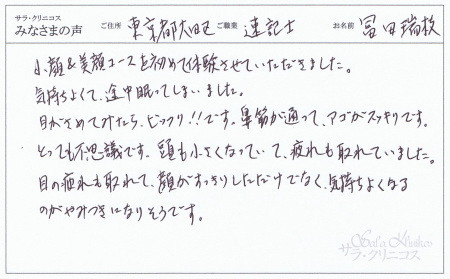 サラ・クリニコス
みなさまの声
ご住所 東京都大田区 ご職業 速記士 お名前 冨田瑞枝
小顔&美顔コースを初めて体験させていただきました。
気持ちよくて、途中眠ってしまいました。
目がさめてみたら、ビックリ!!です。鼻筋が通って、アゴがスッキリです。
とっても不思議です。頭も小さくなっていて、疲れも取れていました。
目の疲れも取れて、顔がすっきりしただけでなく、気持ちよくなる
のがやみつきになりそうです。
Sala Klinikos
サラ・クリニコス